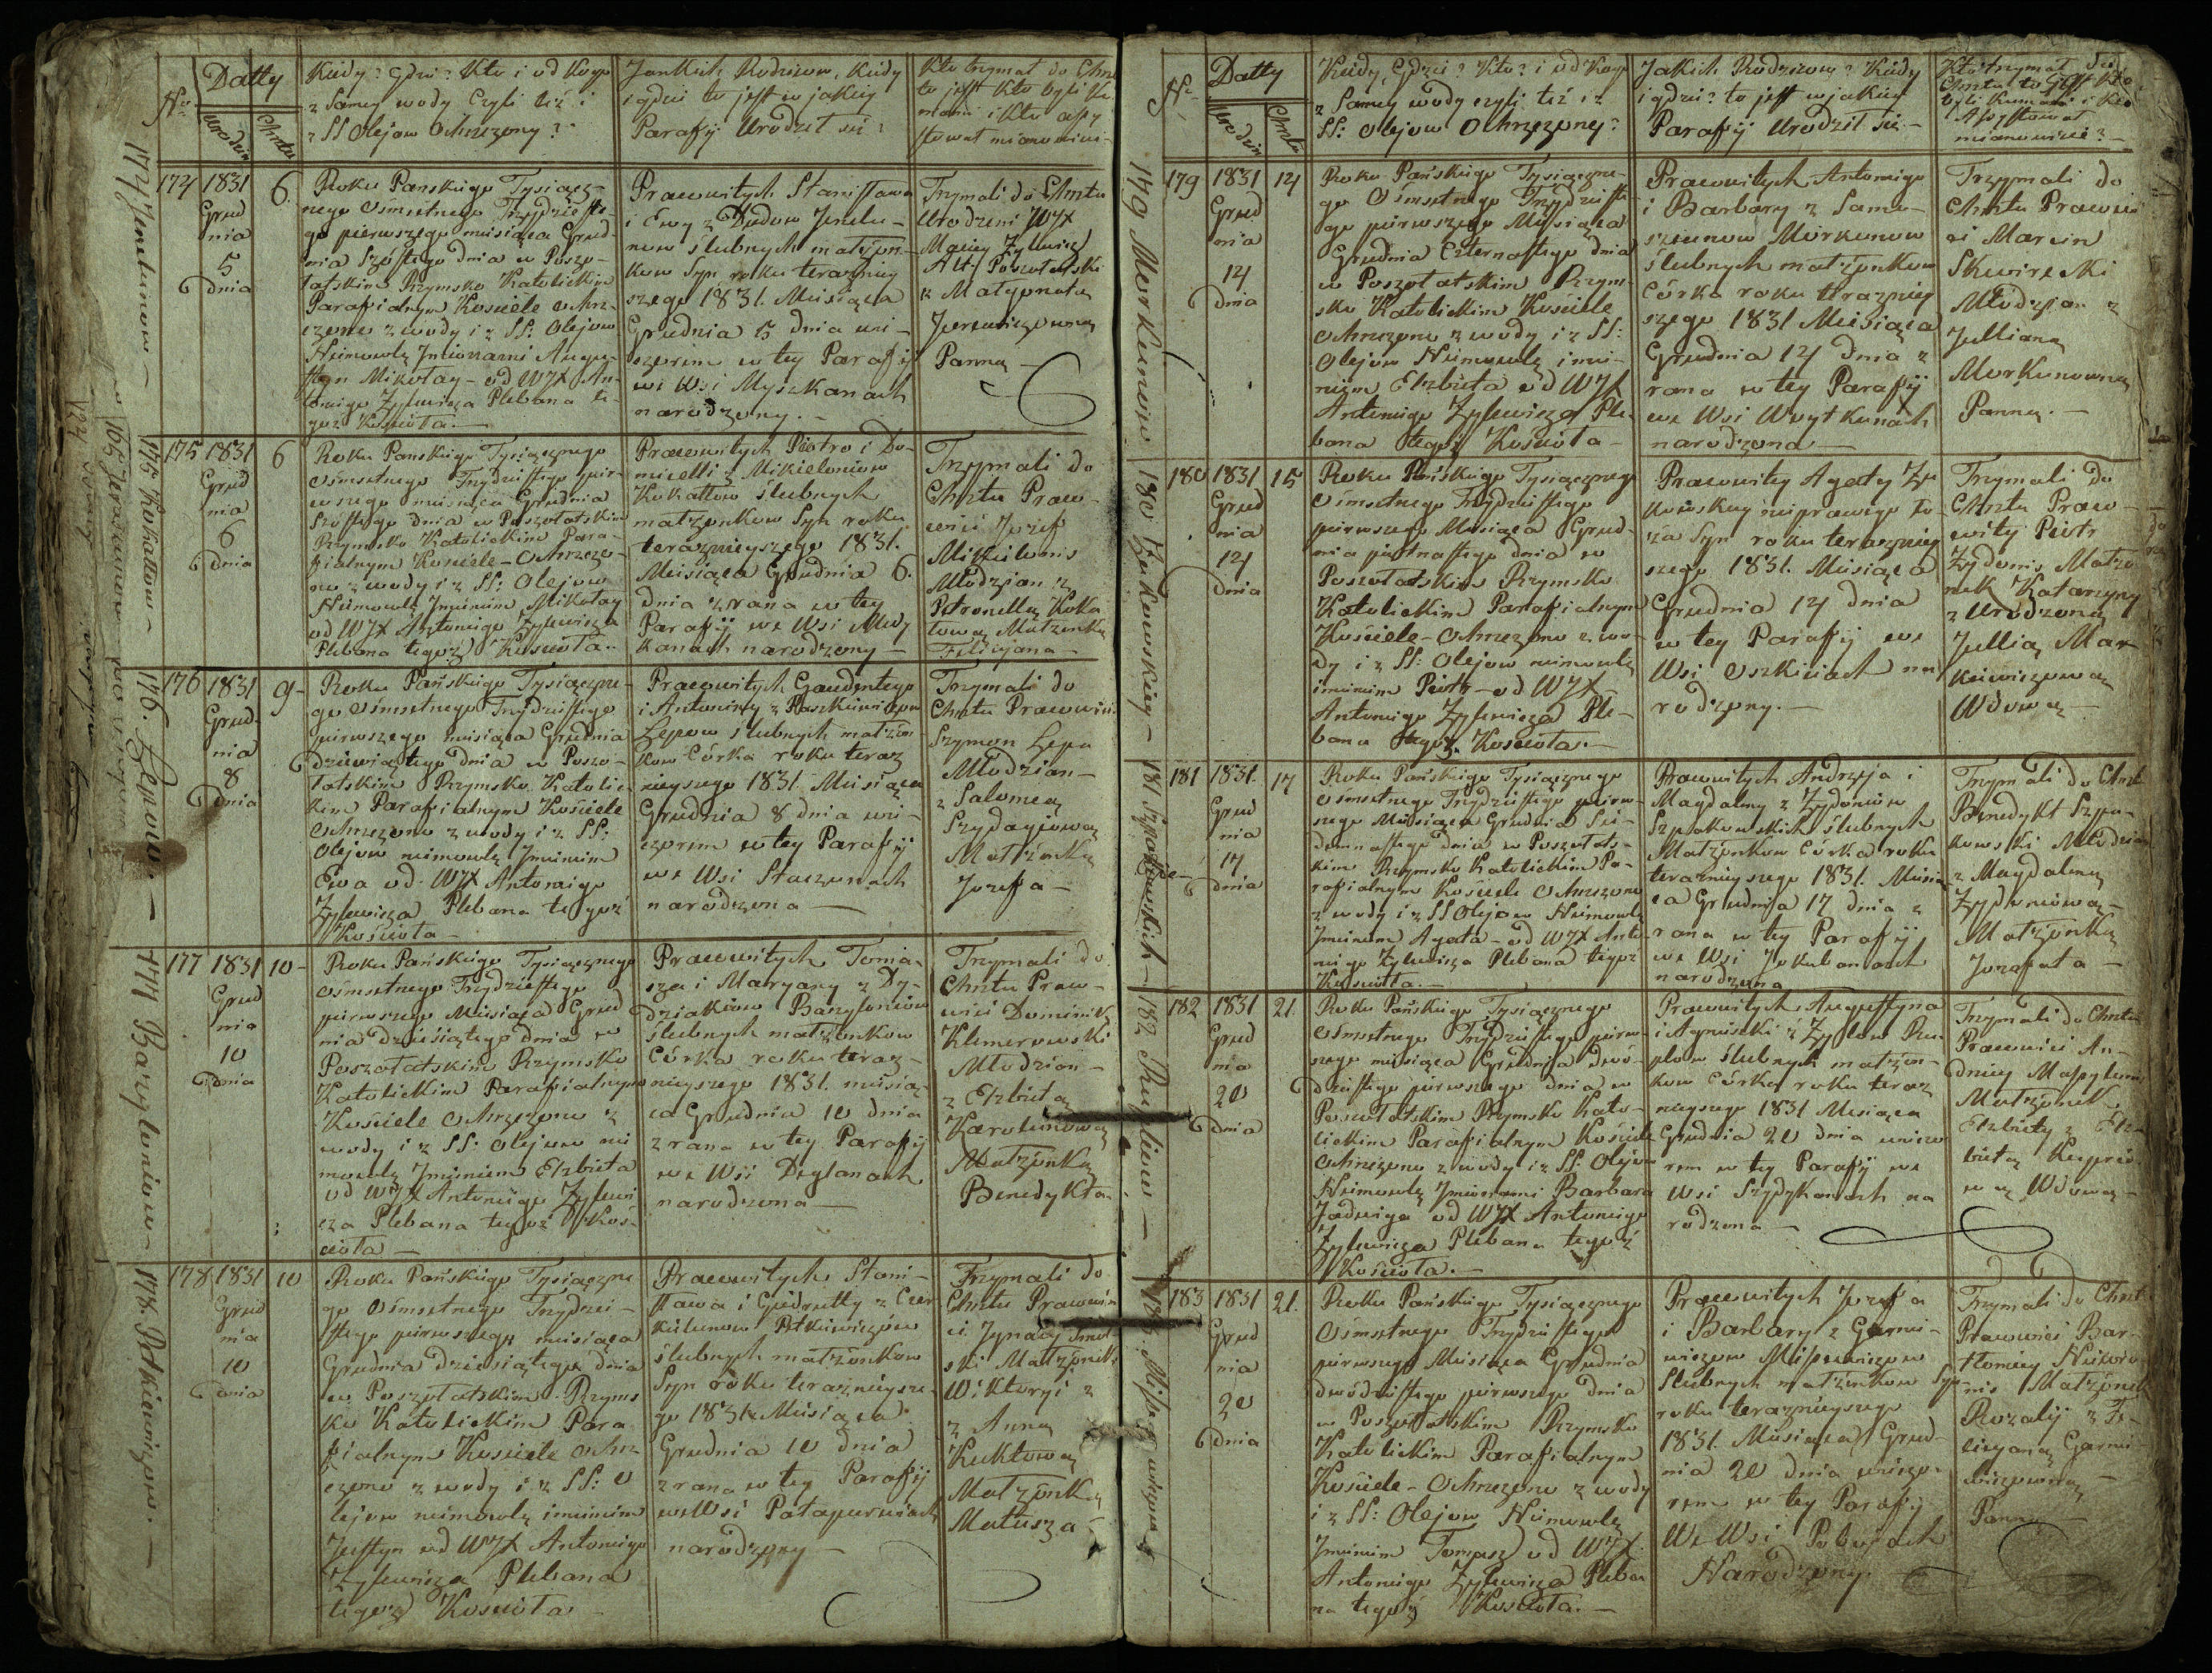 No
Datty
Urodzin
Chrztu
Kiedy? Gdzie? Kto i od Kogo
z Samey wody Czyli też i
z SS Olejow Ochrzczony?
Jankich Rodzicow, Kiedy
i gdzie to jest w jakiey
Parafij Urodził się?
Kto trzymał do Chrz
to jest Kto byli Ku
mami i Kto assy
stował mianowicie
174 Jenelunow
174
1831
Grud
nia
5
dnia
6
Roku Panskiego Tysiącz-
nego Osmsetnego Trzydzieste-
go pierwszego miesiąca Grud-
nia Szóstego dnia w Poszo-
łatskim Rzymsko Katolickim
Parafialnym Kosciele ochrz-
czono z wody i z SS: Olejow
Niemowle Imionami Augu-
styn Mikołay - od WJX An-
toniego Zylewicza Plebana te-
goż Kościoła.
Prawowitych Stanisława
i Ewy z Dudow Jenelu-
now ślubnych małżon-
kow Syn roku teraźniey
szego 1831. Miesiąca
Grudnia 5 dnia wie-
czorem w tey Parafij
we Wsi Myszkanach
narodzony.
Trzymali do Chrztu
Urodzeni WJX
Maciey Zylewicz
Alt: Poszołatski
z Małgorzatą
Jurewiczowną
Panną
175 Kokattow
175
1831
Grud
nia
6
dnia
6
Roku Panskiego Tysiącznego
Osmsetnego Trzydziestego pier-
wszego miesiąca Grudnia
Szóstego dnia w Poszołatskim
Rzymsko Katolickim Para-
fialnym Kosciele - Ochrzczo-
no z wody i z SS: Olejow
Niemowle Imieniem Mikołay
od WJX Antoniego Zylewicza
Plebana tegoż Kościoła.
Prawowitych Piotra i Do-
micelli z Mikieloniow
Kokattow ślubnych
małżonkow Syn roku
teraźnieyszego 1831.
Miesiąca Grudnia 6.
dnia z rana w tey
Parafij we Wsi Medy
kanach narodzony
Trzymali do
Chrztu Praw-
wici Jozef
Mikielonis
Młodzian z
Petronellą Koka
tową Małżonką
Felicyana
176. Lepow.
176
1831
Grud-
nia
8
dnia
9
Roku Pańskiego Tysiączne-
go Osmsetnego Trzydziestego
pierwszego miesiąca Grudnia
dziewiątego dnia w Poszo-
łatskim Rzymsko Katolic-
kim Parafialnym Kościele
Ochrzczono z wody i z SS:
Olejow niemowle Imieniem
Ewa od WJX Antoniego
Zylewicza Plebana tegoż
Kościoła
Prawowitych Gaudentego
i Antoniny z Staszkiewiczow
Lepow ślubnych małżon
kow Córka roku teraz
nieyszego 1831. Miesiąca
Grudnia 8 dnia wie-
czorem w tey Parafij
we Wsi Staczunach
narodzona
Trzymali do
Chrztu Prawwici
Szymon Lepa
Młodzian
z Salomeą
Szydagiową
Małżonką
Jozefa
177 Bazyloniow
177
1831
Grud
nia
10
dnia
10
Roku Pańskiego Tysiącznego
Osmsetnego Trzydziestego
pierwszego Miesiąca Grud
nia dziesiątego dnia w
Poszołatskim Rzymsko
Katolickim Parafialnym
Kościele Ochrzczono z
wody i z SS: Olejow nie
mowle Imieniem Elzbieta
od WJX Antoniego Zylewi
cza Plebana tegoż Koś-
cioła
Prawowitych Toma-
sza i Maryany z Dy-
dziakow Bazyloniow
ślubnych małżonkow
Córka roku teraz-
nieyszego 1831. miesią-
ca Grudnia 10 dnia
z rana w tey Parafij
we Wsi Deglanach
narodzona
Trzymali do
Chrztu Praw-
wici Dominik
Klimerowski
Młodzian
z Elzbietą
Karolunową
Małżonką
Benedykta
178. Petkiewiczow.
178
1831
Grud
nia
10
dnia
10
Roku Pańskiego Tysiączne
go Osmsetnego Trzydzie-
stego pierwszego miesiąca
Grudnia dziesiątego dnia
w Poszołatskim Rzyms
ko Katolickim Para
fialnym Kosciele ochrz
czono z wody i z SS: O
lejow niemowle imieniem
Justyn od WJX Antoniego
Zylewicza Plebana
tegoż Kościoła
Prawowitych Stani-
sława i Giedrutty z Czer
kielunow Petkiewiczow
ślubnych małżonkow
Syn roku teraźnieysze-
go 1831. Miesiąca
Grudnia 10 dnia
z rana w tey Parafij
we Wsi Patapurwiach
narodzony
Trzymali do
Chrztu Prawwi
ci Jgnacy
Małżonek
Wiktoryi z
z Anną
Kuktową
Małżonką
Mateusza
No
Datty
Urodzin
Chrztu
Kiedy, Gdzie? Kto? i od Kogo
z Samey wody czyli też i z
SS: Olejow Ochrzczony?
Jakich Rodzicow? Kiedy
i gdzie? to jest w jakiey
Parafij Urodził się
Kto trzymał do
Chrztu to jest Kto
byli Kumami i Kto
Assystował
mianowicie?
179 Merkunow
179
1831
Grud
nia
14
dnia
14
Roku Pańskiego Tysiączne-
go Osmsetnego Trzydzieste
go pierwszego Miesiąca
Grudnia Czternastego dnia
w Poszołatskim Rzym-
sko Katolickim Kościele
ochrzczono z wody i z SS:
Olejow Niemowle imie-
niem Elzbieta od WJX
Antoniego Zylewicza Ple-
bana tegoż Kościoła
Prawowitych Antoniego
i Barbary z Sama-
szunow Merkunow
ślubnych małżonkow
Córka roku teraźniey
szego 1831 Miesiąca
Grudnia 14 dnia z
rana w tey Parafij
we Wsi Woytkunach
narodzona
Trzymali do
Chrztu Prawwi
ci Marcin
Skwirecki
Młodzian z
Jullianą
Merkunowną
Panną.
180 Żukowskiey
180
1831
Grud
nia
14
dnia
15
Roku Pańskiego Tysiącznego
Osmsetnego Trzydziestego
pierwszego Miesiąca Grud-
nia piętnastego dnia w
Poszołatskim Rzymsko
Katolickim Parafialnym
Kościele - Ochrzczono z wo-
dy i z SS: Olejow niemowle
imieniem Piotr - od WJX
Antoniego Zylewicza Ple-
bana tegoż Kościoła.
Prawowitey Agaty Żu
kowskiey nieprawego ło-
ża Syn roku teraźniey
szego 1831. Miesiąca
Grudnia 14 dnia
w tey Parafij we
Wsi Oszkiciach na
rodzony.
Trzymali do
Chrztu Praw-
wity Piotr
Zydonis Małżo
nek Katarzyny
z Urodzoną
Jullią Mar
kiewiczową
Wdową
181 Szpakowskich
181
1831.
Grud
nia
17
dnia
17
Roku Pańskiego Tysiącznego
Osmsetnego Trzydziestego pierw-
szego Miesiąca Grudnia Sie-
demnastego dnia w Poszołats-
kim Rzymsko Katolickim Pa-
rafialnym Kosciele Ochrzczono
z wody i z SS Olejow Niemowle
Imieniem Agata - od WJX Anto-
niego Zylewicza Plebana tegoż
Kościoła.
Prawowitych Andrzeja i
Magdaleny z Zydoniow
Szpakowskich ślubnych
Małżonkow Córka roku
teraznieyszego 1831. Miesią
ca Grudnia 17 dnia z
rana w tey Parafij
we Wsi Jakubancach
narodzona
Trzymali do Chrzt
Benedykt Szpa-
kowski Młodzian
z Magdaleną
Zydoniową
Małżonką
Jozafata
182
182
1831
Grud
nia
20
dnia
21
Roku Pańskiego Tysiącznego
Osmsetnego Trzydziestego pierw-
szego miesiąca Grudnia dwó-
dziestego pierwszego dnia w
Poszołatskim Rzymsko Kato-
lickim Parafialnym Kościele
Ochrzczono z wody i z SS: Olejow
Niemowle Imionami Barbara
Jadwiga od WJX Antoniego
Zylewicza Plebana tegoż
Kościoła.
Prawowitych Augustyna
i Agnieszki z Zyplow
ślubnych małżon-
kow Córka roku teraz
nieyszego 1831 Miesiąca
Grudnia 20 dnia wieczo
rem w tey Parafij we
Wsi Szydzkanach na
rodzona
Trzymali do Chrztu
Prawwici An-
drzey
Małżonek
Elzbiety z Elz-
bietą
Wdową
183
183
1831
Grud
nia
20
dnia
21.
Roku Pańskiego Tysiącznego
Osmsetnego Trzydziestego
pierwszego Miesiąca Grudnia
dwódziestego pierwszego dnia
w Poszołatskim Rzymsko
Katolickim Parafialnym
Kościele - Ochrzczono z wody
i z SS: Olejow Niemowle
Imieniem Tomasz od WJX
Antoniego Zylewicza Pleba
na tegoż Kościoła.
Prawowitych Jozefa
i Barbary z Garni-
wiczow Misiewiczow
Slubnych małżonkow Syn
roku teraznieyszego
1831. Miesiąca Grud-
nia 20 dnia wieczo-
rem w tey Parafij
We Wsi Pobojach
Narodzony.
Trzymali do Chrzt
Prawwici Bar-
tłomiey
Małżonek
Rozalij z Fe-
licyaną Garni-
wiczowną
Panną